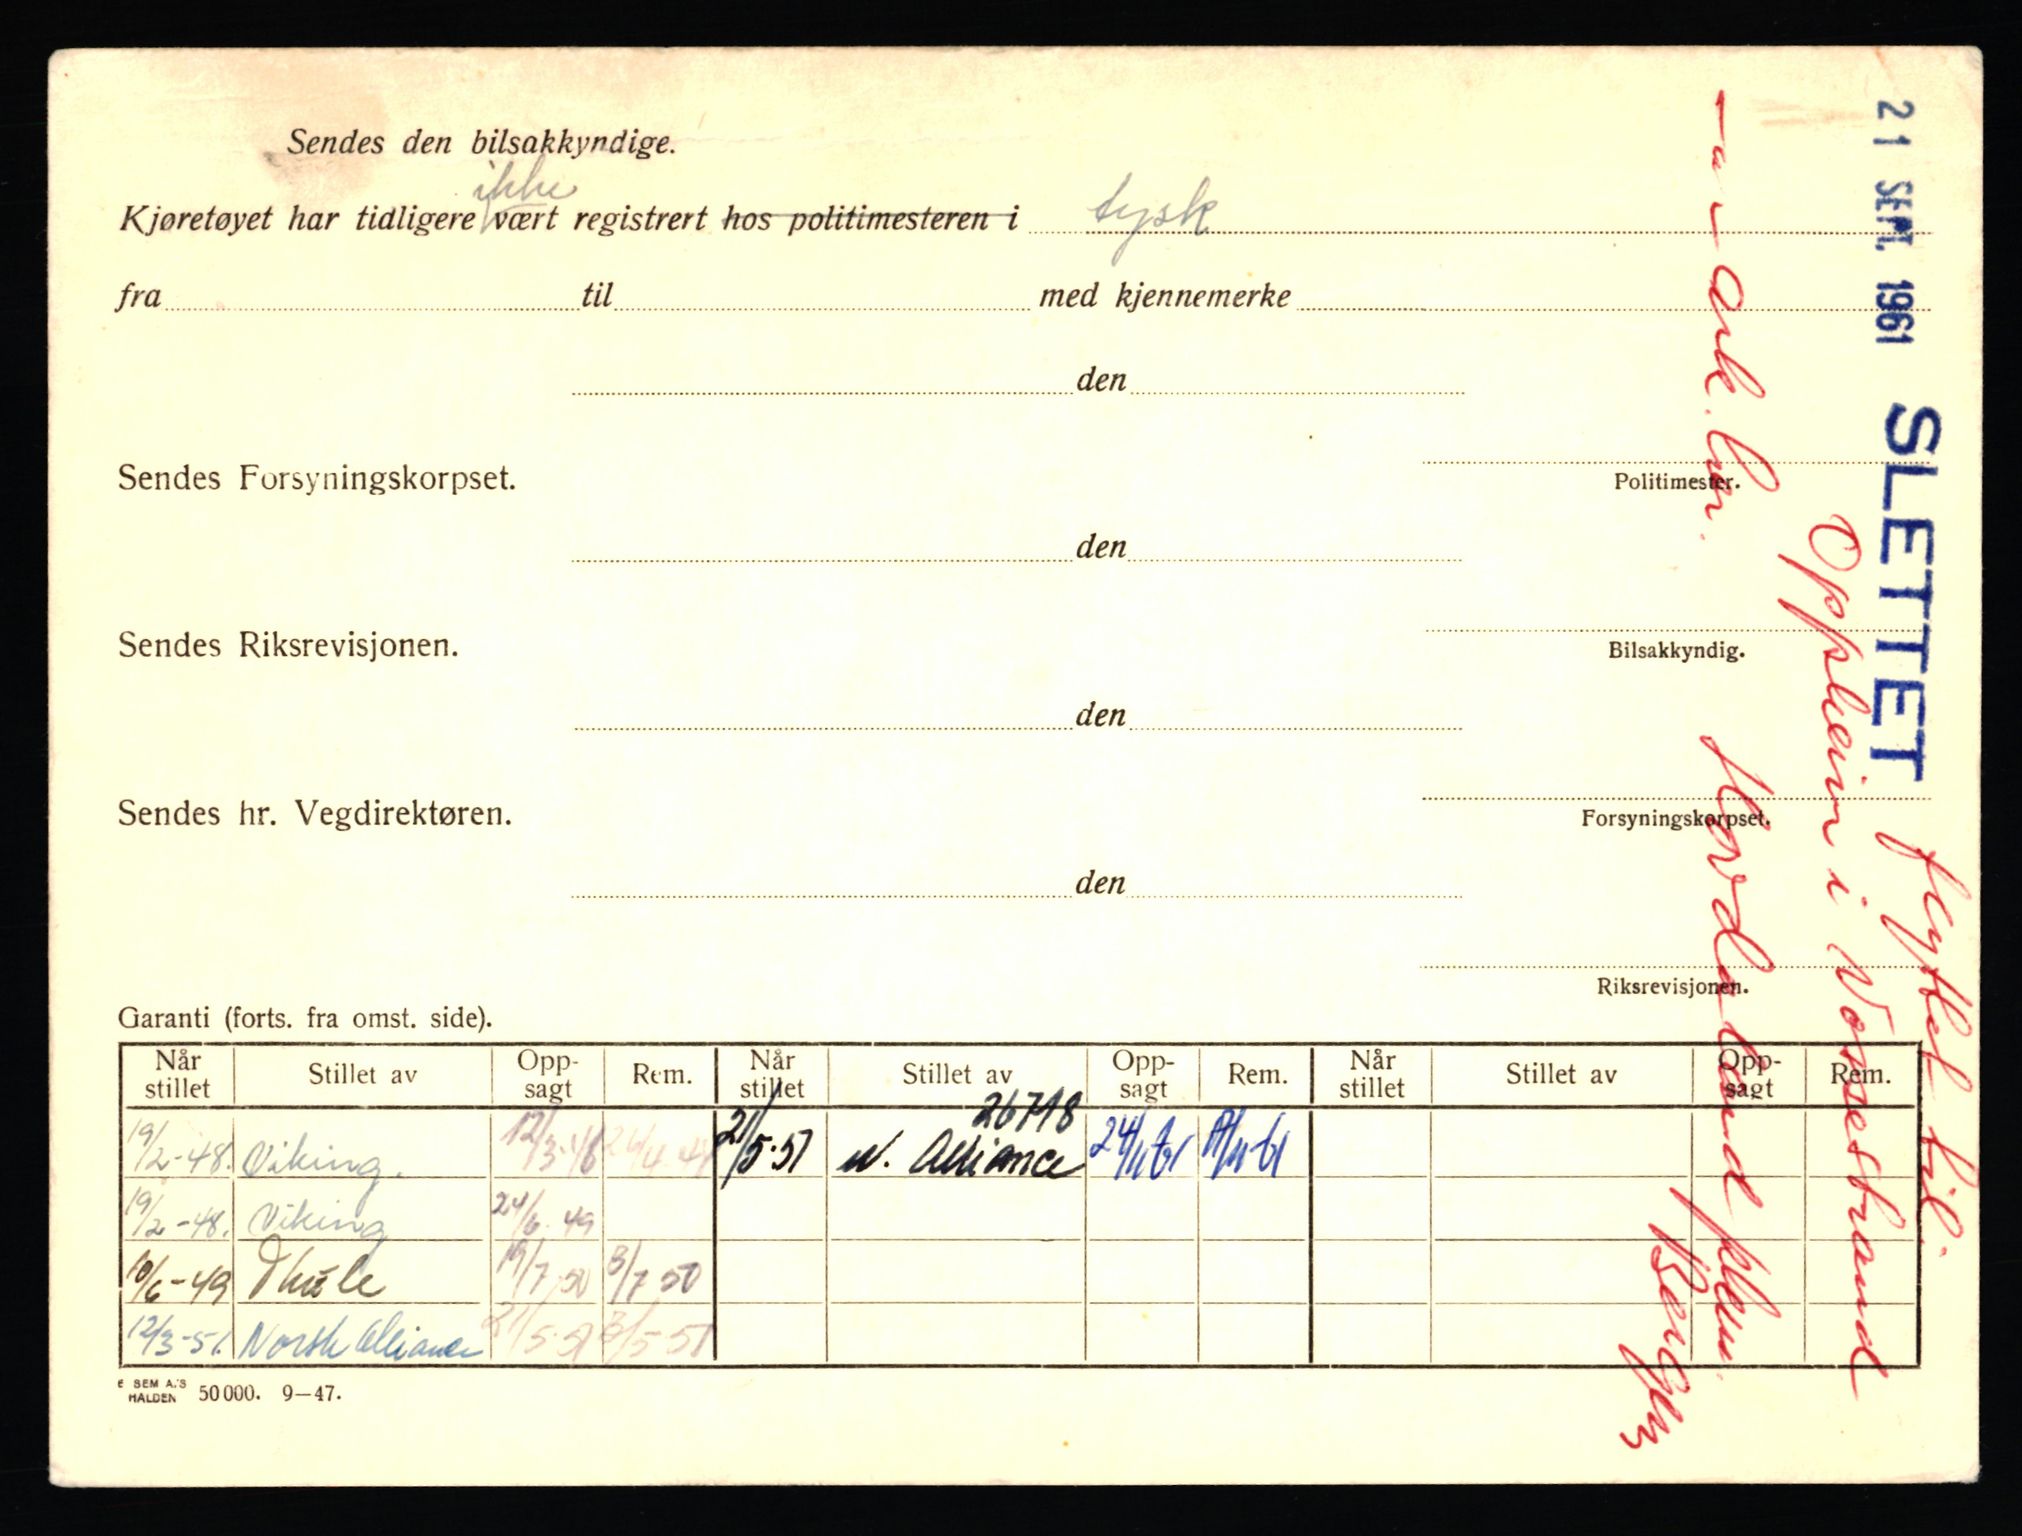 Sendes den bilsakkyndige.
ikke
Kjøretøyet har tidligere vært registrert hos politimesteren i tysk
fra til med kjennemerke
den
Politimester.
Sendes Forsyningskorpset.
den
Bilsakkyndig.
Sendes Riksrevisjonen.
den
Forsyningskorpset.
Sendes hr. Vegdirektøren.
den
Riksrevisjonen.
Garanti (forts. fra omst. side).
Når stillet Stillet av Opp-sagt Rem. Når stillet Stillet av Opp-sagt Rem. Når stillet Stillet av Opp-sagt Rem.
26718
19/2-48. Viking. 12/3-48 21/5-51 N. Alliance 24/11 61
19/2-48. Viking 24/6 49
10/6-49 Thule 19/7 50 3/7 50
12/3-51. Norsk Alliance 21/5-51 3/5-51
E SEM A.'S
HALDEN 50 000. 9—47.
21 SEPT. 1961 SLETTET flyttet til
Oppheim i Vossestrand
Hordaland
Bergen